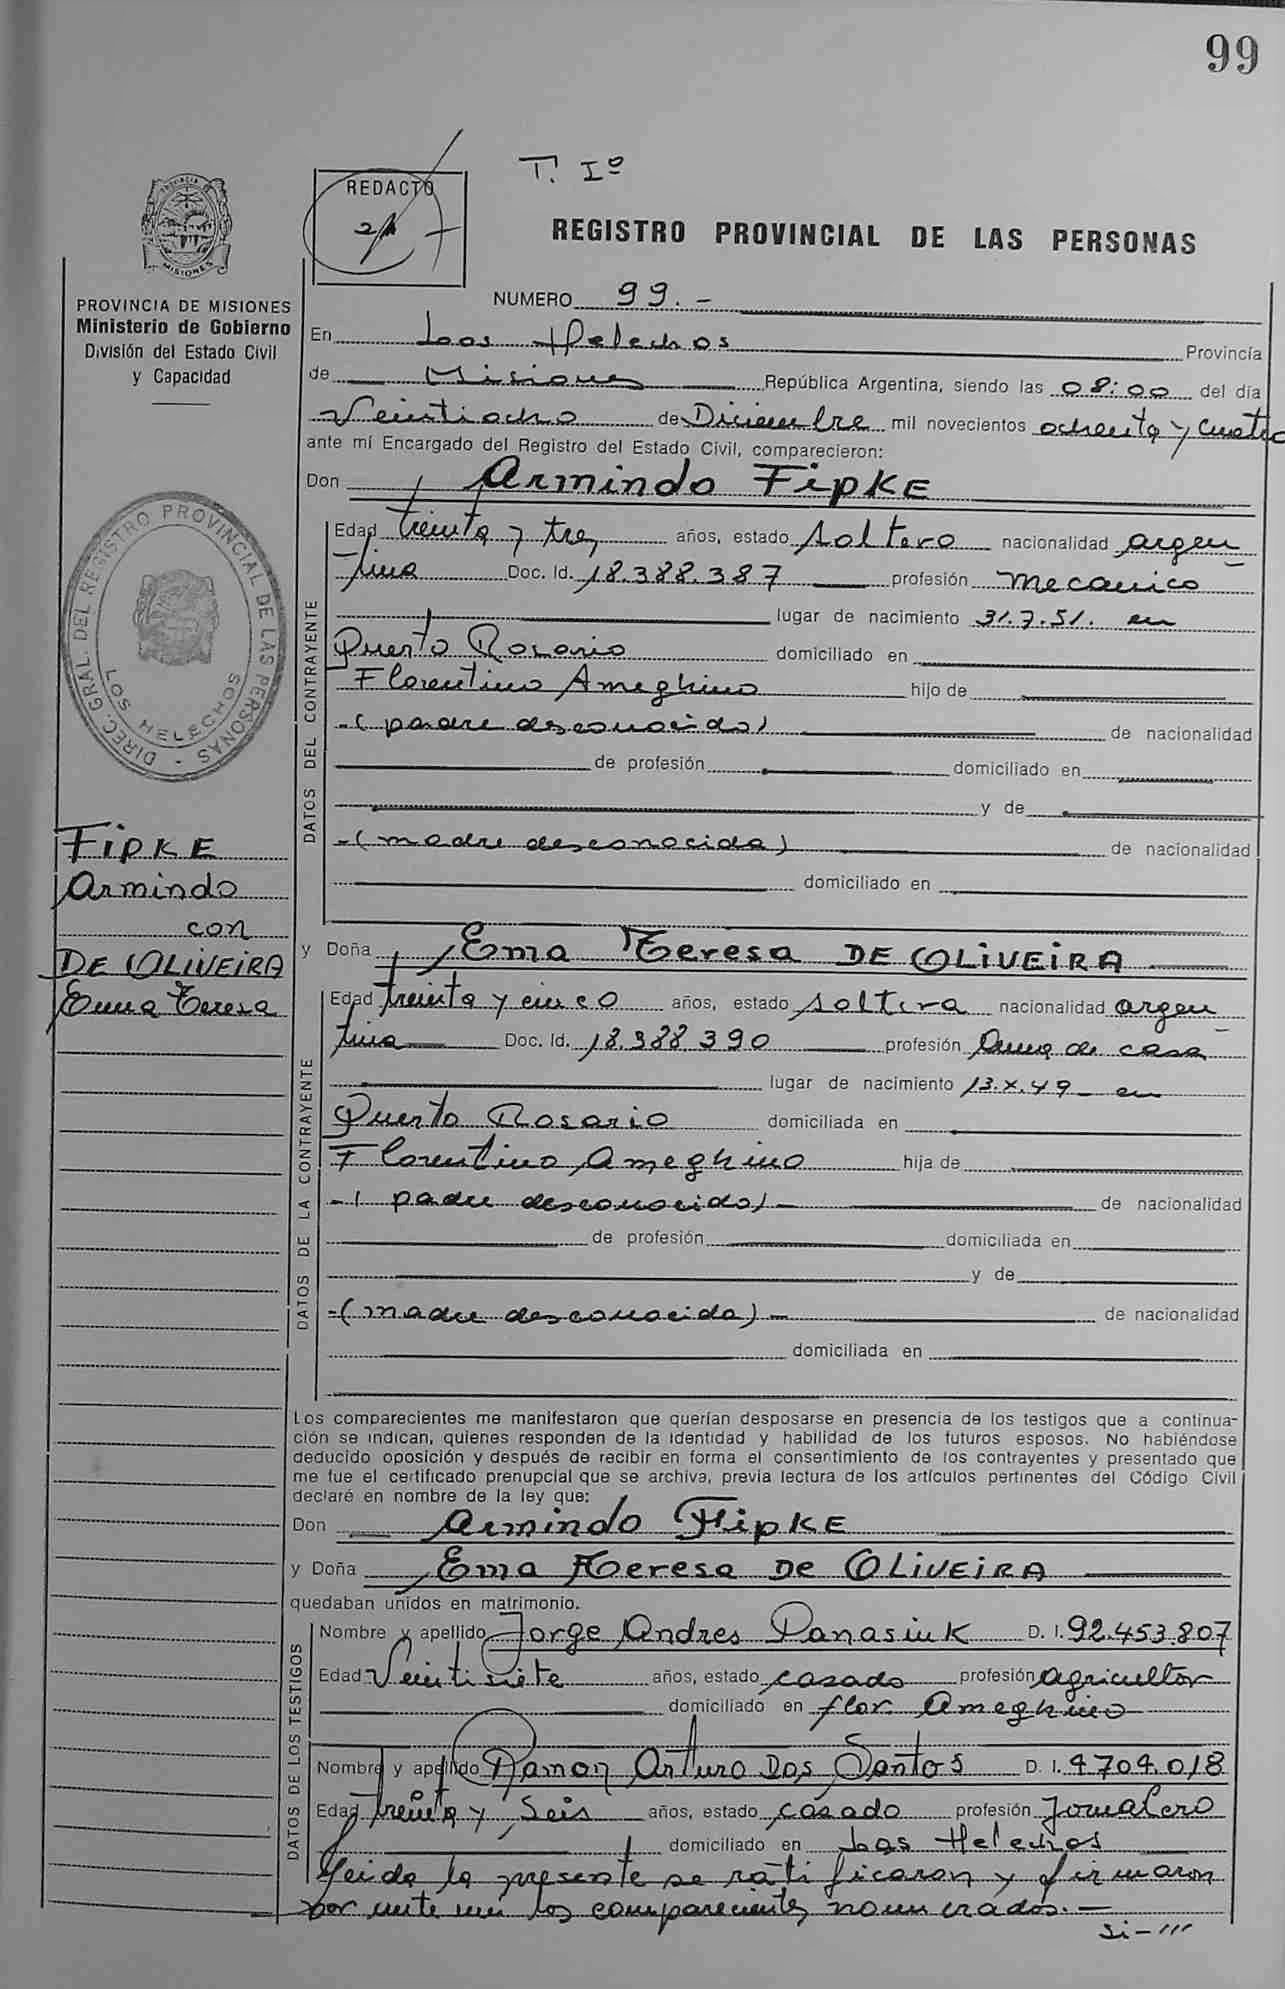 99
T. Iº
REDACTO
REGISTRO PROVINCIAL DE LAS PERSONAS
MISIONES
PROVINCIA DE MISIONES
Ministerio de Gobierno
División del Estado Civil
y Capacidad
NUMERO 99.-
En Los Helechos Provincia
de Misiones República Argentina, siendo las 08:00 del día
Veintiocho de Diciembre mil novecientos ochenta y cuatro
ante mí Encargado del Registro del Estado Civil, comparecieron:
Don Armindo FipKE
DIREC. GRAL. DEL REGISTRO PROVINCIAL DE LAS PERSONAS -
LOS HELECHOS
FipKE
Armindo
con
DE OLiVEiRA
Ema Teresa
DATOS DEL CONTRAYENTE
Edad treinta y tres años, estado soltero nacionalidad argen
tina Doc. Id. 18.388.387 profesión mecanico
lugar de nacimiento 31.7.51. en
Puerto Rosario domiciliado en
Florentino Ameghino hijo de
-(padre desconocido) de nacionalidad
de profesión domiciliado en
y de
-(madre desconocida) de nacionalidad
domiciliado en
y Doña Ema Teresa DE OLiVEiRA
DATOS DE LA CONTRAYENTE
Edad treinta y cinco años, estado soltera nacionalidad argen
tina Doc. Id. 18.388.390 profesión Ama de casa
lugar de nacimiento 13.X.49 - en
Puerto Rosario domiciliada en
Florentino Ameghino hija de
-(padre desconocido)- de nacionalidad
de profesión domiciliada en
y de
-(madre desconocida)- de nacionalidad
domiciliada en
Los comparecientes me manifestaron que querían desposarse en presencia de los testigos que a continua-
ción se indican, quienes responden de la identidad y habilidad de los futuros esposos. No habiéndose
deducido oposición y después de recibir en forma el consentimiento de los contrayentes y presentado que
me fue el certificado prenupcial que se archiva, previa lectura de los artículos pertinentes del Código Civil
declaré en nombre de la ley que:
Don Armindo FipKE
y Doña Ema Teresa DE OLiVEiRA
quedaban unidos en matrimonio.
DATOS DE LOS TESTIGOS
Nombre y apellido Jorge Andres Panasiuk D. I. 92.453.807
Edad Veintisiete años, estado casado profesión agricultor
domiciliado en flor. Ameghino
Nombre y apellido Ramon Arturo Dos Santos D. I. 4704.018
Edad treinta y seis años, estado casado profesión Jornalero
domiciliado en Los Helechos
Leida la presente se ratificaron y firmaron
por ante mi los comparecientes nombrados.-
si-///